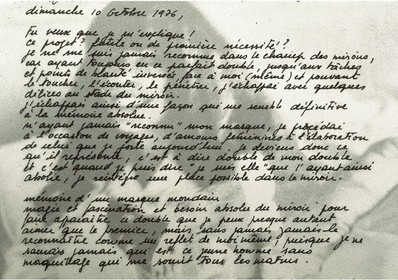 dimanche 10 octobre 1976,
tu veux que je m'explique!
ce projet? futile ou de première nécessité!?
je ne me suis jamais reconnue dans le champ des miroirs,
car ayant toujours eu ce parfait double, jusqu'aux tâches
et points de beauté inversés, face à moi (même) et pouvant
le toucher, l'écouter, le pénétrer, j'échappai avec quelques
délices au stade du miroir.
j'échappai ainsi d'une façon qui me semble définitive
à la mémoire absolue.
n'ayant jamais "reconnu" mon masque, je procédai
à l'occasion de voyages, d'amours féminines à l'élaboration
de celui que je porte aujourd'hui, je deviens donc ce
qu'il représente, c'est à dire double de mon double
et c'est quand je peux dire "je suis elle" que l'ayant ainsi
absolue, je réintègre une place possible dans le miroir.
mémoire d'un masque mondain
magie et fascination et besoin absolue du miroir pour
faire apparaître ce double que je peux presque autant
aimer que le premier, mais sans jamais jamais le
reconnaître comme un reflet de moi même, puisque je ne
saurais jamais qui est ce jeune homme sans
maquillage qui me sourit tous les matins.